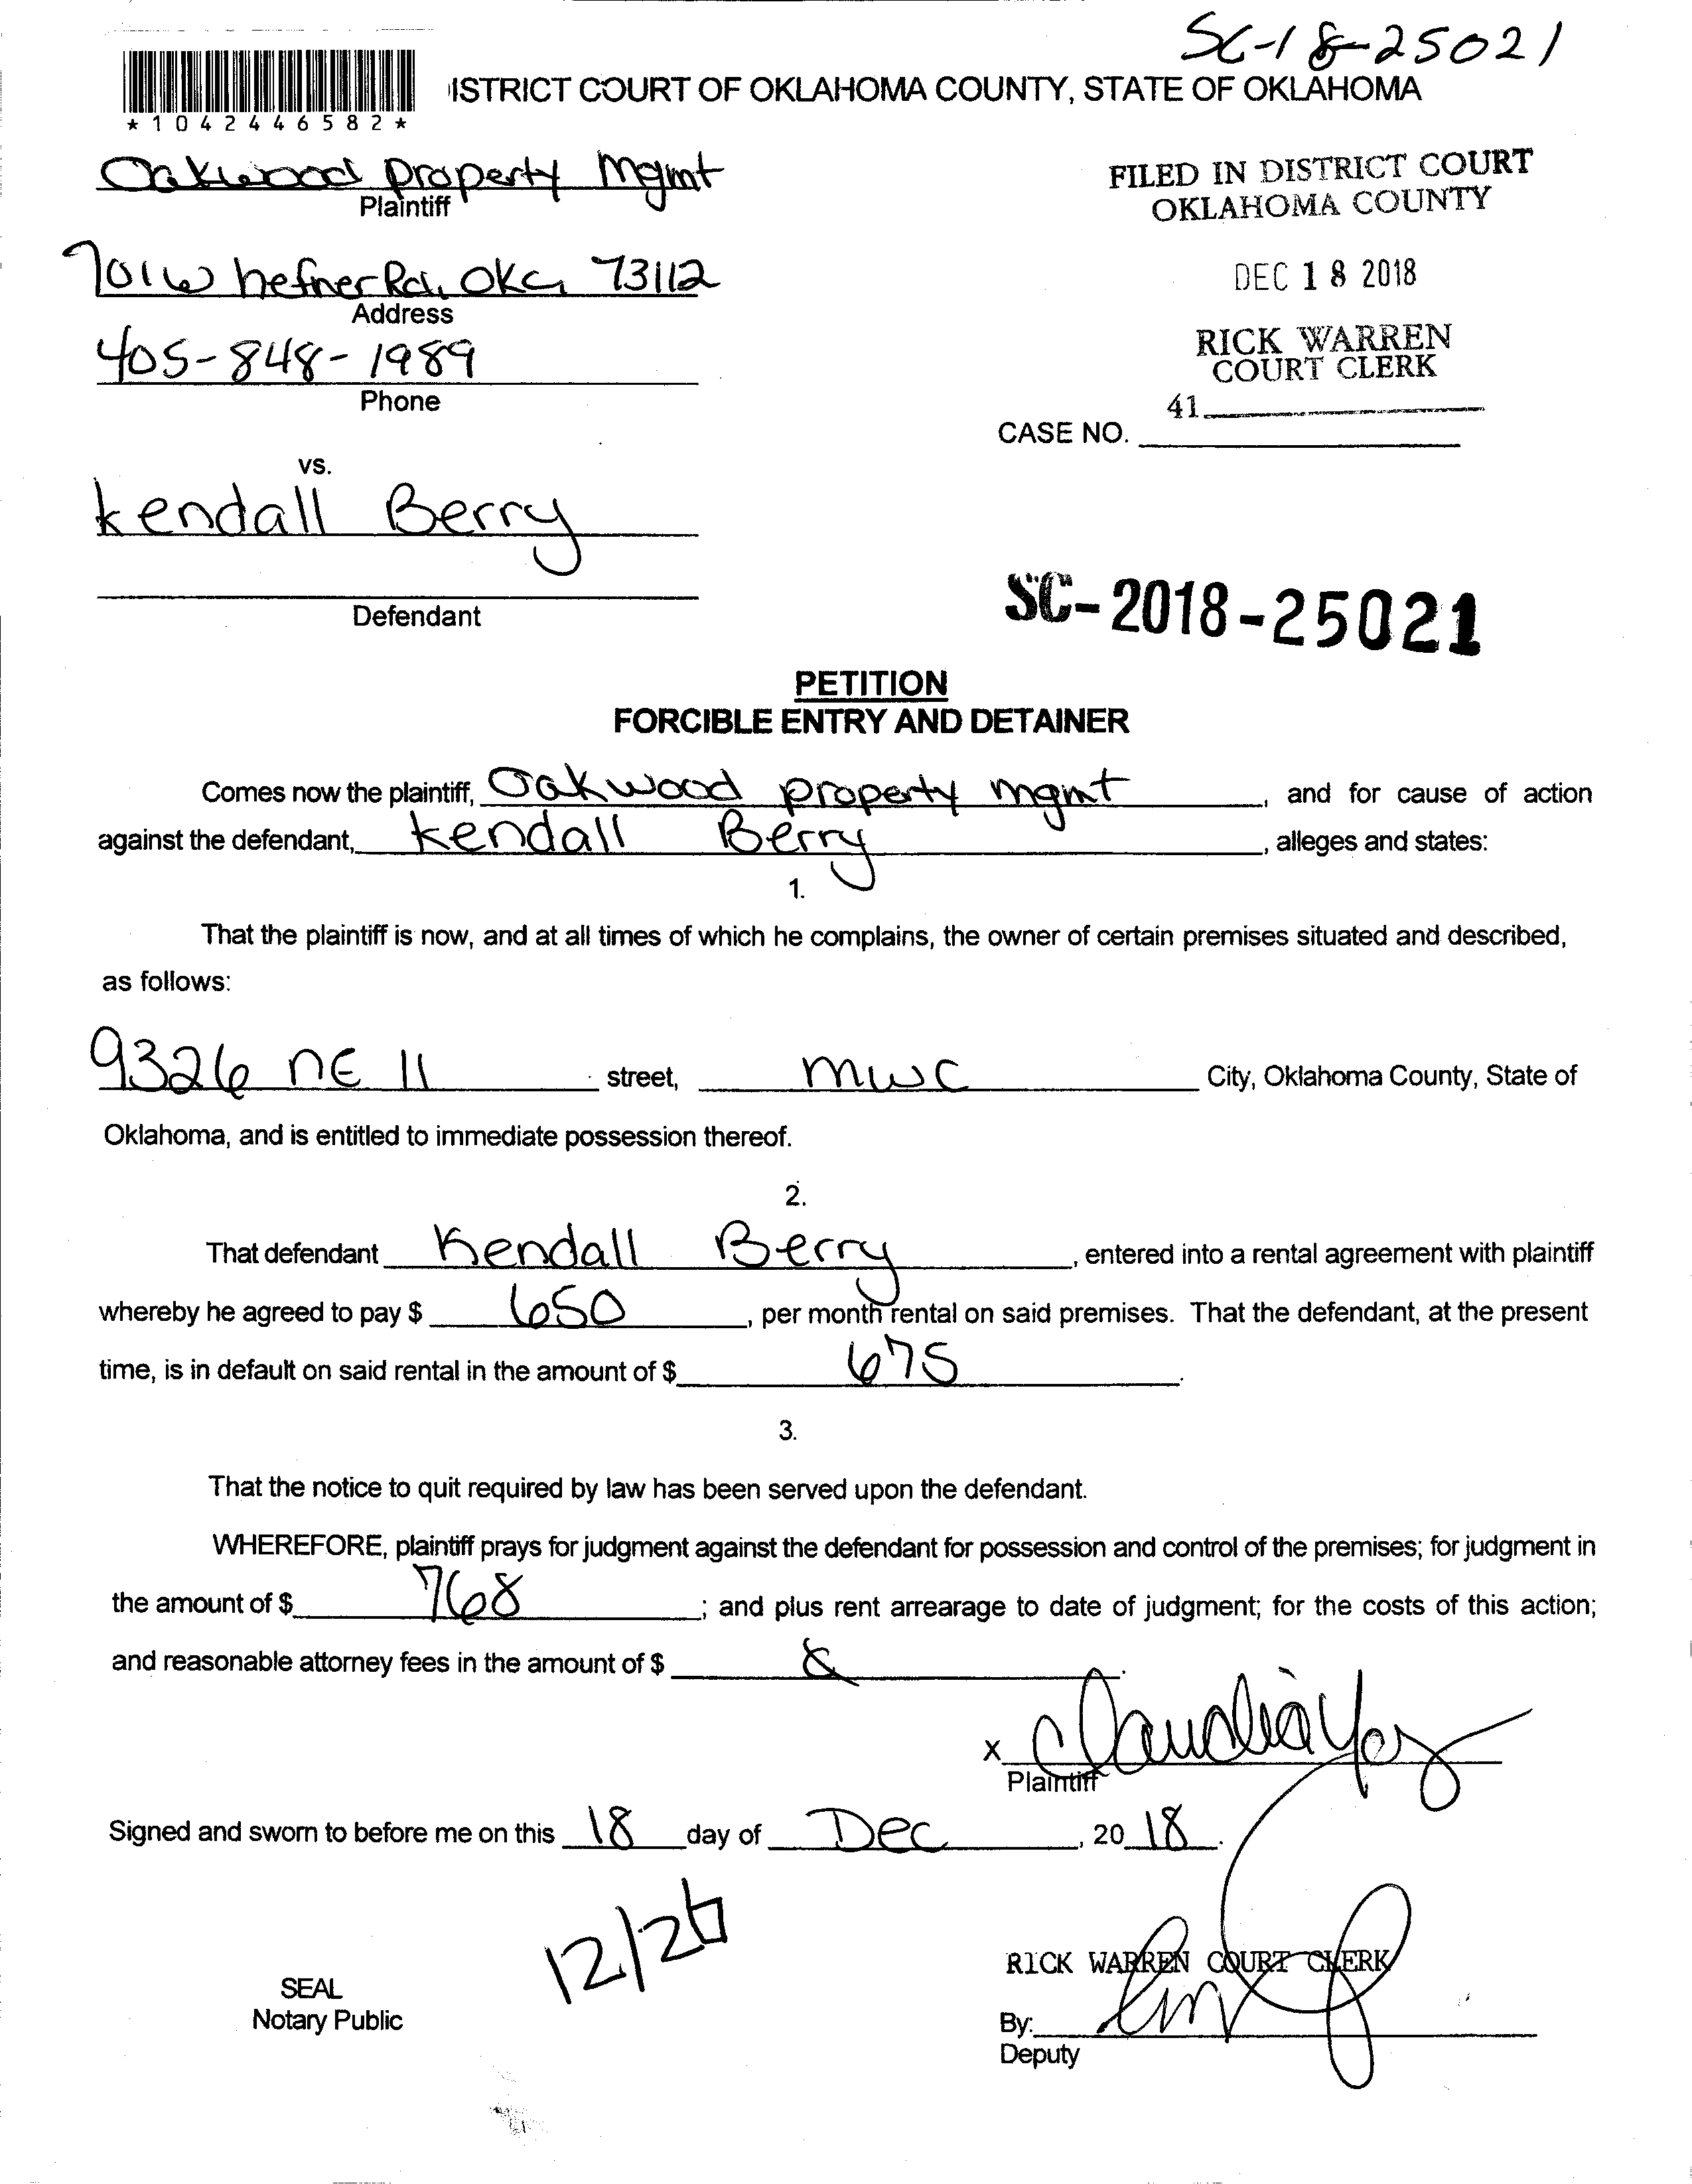 SC-18-25021
ISTRICT COURT OF OKLAHOMA COUNTY, STATE OF OKLAHOMA
*1042446582*
Oakwood property Mgmt
Plaintiff
FILED IN DISTRICT COURT
OKLAHOMA COUNTY
701 W hefner Rd, OKC, 73112
Address
DEC 18 2018
405-848-1989
Phone
RICK WARREN
COURT CLERK
41
CASE NO.
vs.
Kendall Berry
Defendant
SC-2018-25021
PETITION
FORCIBLE ENTRY AND DETAINER
Comes now the plaintiff, Oakwood property mgmt, and for cause of action
against the defendant, Kendall Berry, alleges and states:
1.
That the plaintiff is now, and at all times of which he complains, the owner of certain premises situated and described,
as follows:
9326 NE 11 street, MWC City, Oklahoma County, State of
Oklahoma, and is entitled to immediate possession thereof.
2.
That defendant Kendall Berry, entered into a rental agreement with plaintiff
whereby he agreed to pay $ 650, per month rental on said premises. That the defendant, at the present
time, is in default on said rental in the amount of $ 675.
3.
That the notice to quit required by law has been served upon the defendant.
WHEREFORE, plaintiff prays for judgment against the defendant for possession and control of the premises; for judgment in
the amount of $ 768; and plus rent arrearage to date of judgment; for the costs of this action;
and reasonable attorney fees in the amount of $
x Claudia
Plaintiff
Signed and sworn to before me on this 18 day of Dec, 20 18.
SEAL
Notary Public
RICK WARREN COURT CLERK
By:
Deputy